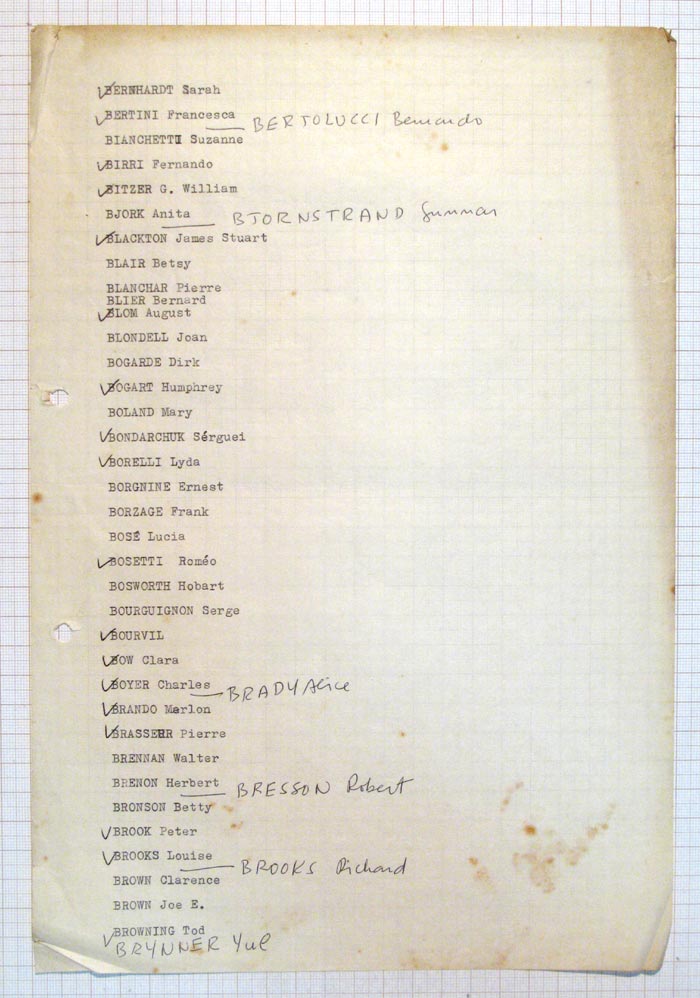 ✓BERNHARDT Sarah
✓BERTINI Francesca
BERTOLUCCI Bernardo
BIANCHETTI Suzanne
✓BIRRI Fernando
✓BITZER G. William
BJORK Anita
BJORNSTRAND Gunnar
✓BLACKTON James Stuart
BLAIR Betsy
BLANCHAR Pierre
BLIER Bernard
✓BLOM August
BLONDELL Joan
BOGARDE Dirk
✓BOGART Humphrey
BOLAND Mary
✓BONDARCHUK Sérguei
✓BORELLI Lyda
BORGNINE Ernest
BORZAGE Frank
BOSÉ Lucia
✓BOSETTI Roméo
BOSWORTH Hobart
BOURGUIGNON Serge
✓BOURVIL
✓BOW Clara
✓BOYER Charles
BRADY Alice
✓BRANDO Marlon
✓BRASSEUR Pierre
BRENNAN Walter
BRENON Herbert
BRESSON Robert
BRONSON Betty
✓BROOK Peter
✓BROOKS Louise
BROOKS Richard
BROWN Clarence
BROWN Joe E.
✓BROWNING Tod
BRYNNER Yul